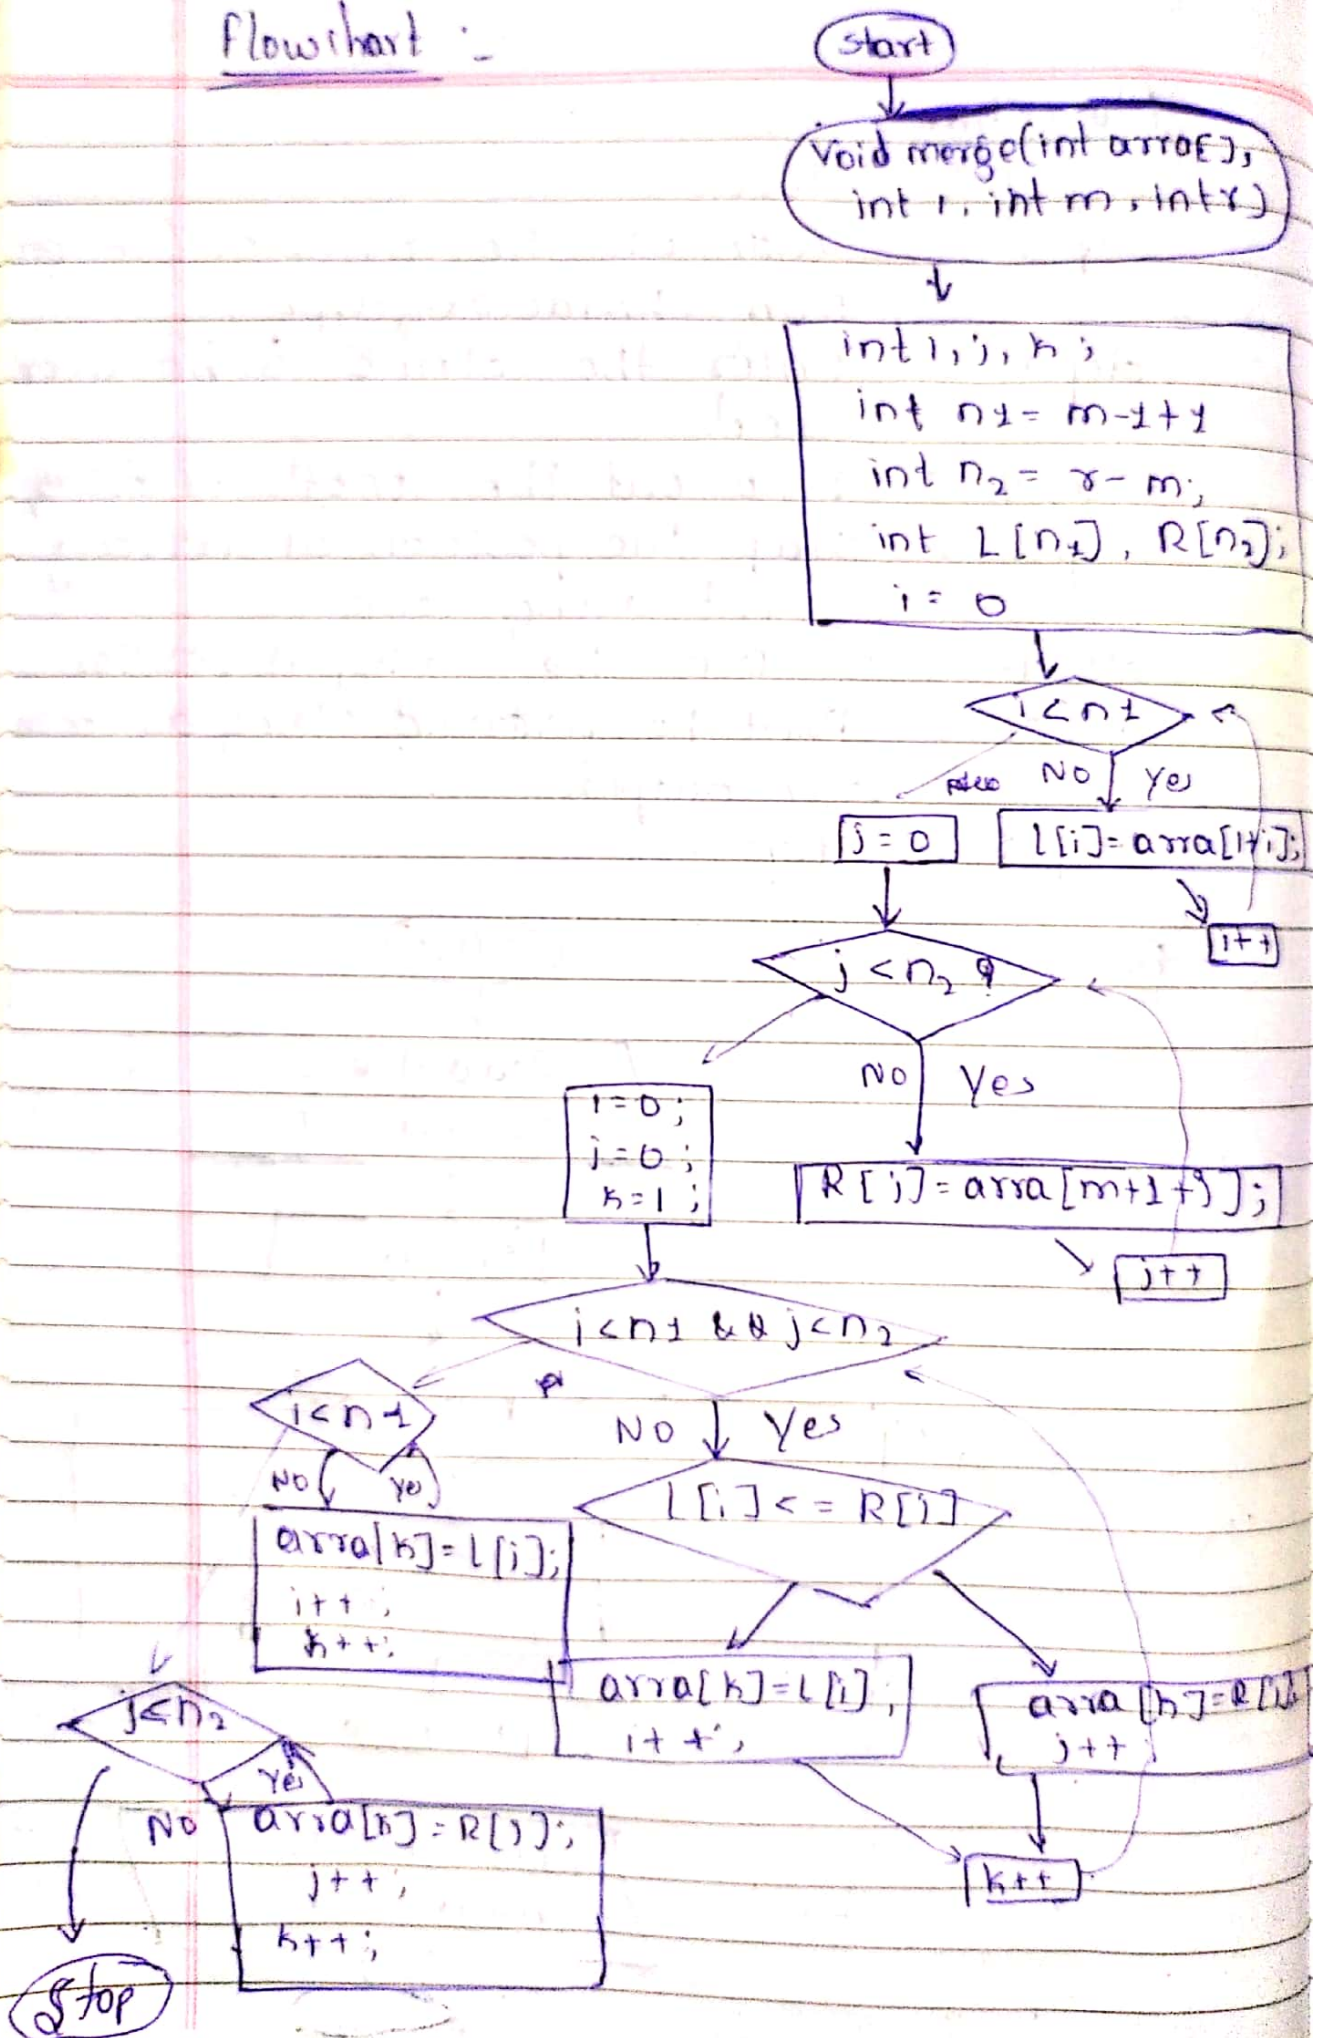 Flowchart :-
Start
void merge(int arra[],
int l, int m, int r)
int i, j, k ;
int n1 = m-1+1
int n2 = r - m;
int L[n1], R[n2];
i = 0
i < n1
NO
Yes
j = 0
l[i]= arra[l+i];
i++
j < n2 ?
NO
Yes
i=0 ;
j=0 ;
k=l ;
R[j]= arra[m+1+j];
j++
i<n1 && j<n2
i<n1
NO
Yes
NO
Yes
l[i] <= R[j]
arra[k]=l[i];
i++ ;
k++;
arra[k]=L[i];
i++;
arra[k]=R[j];
j++;
j<n2
Yes
NO
arra[k]=R[j];
j++;
k++;
k++
Stop